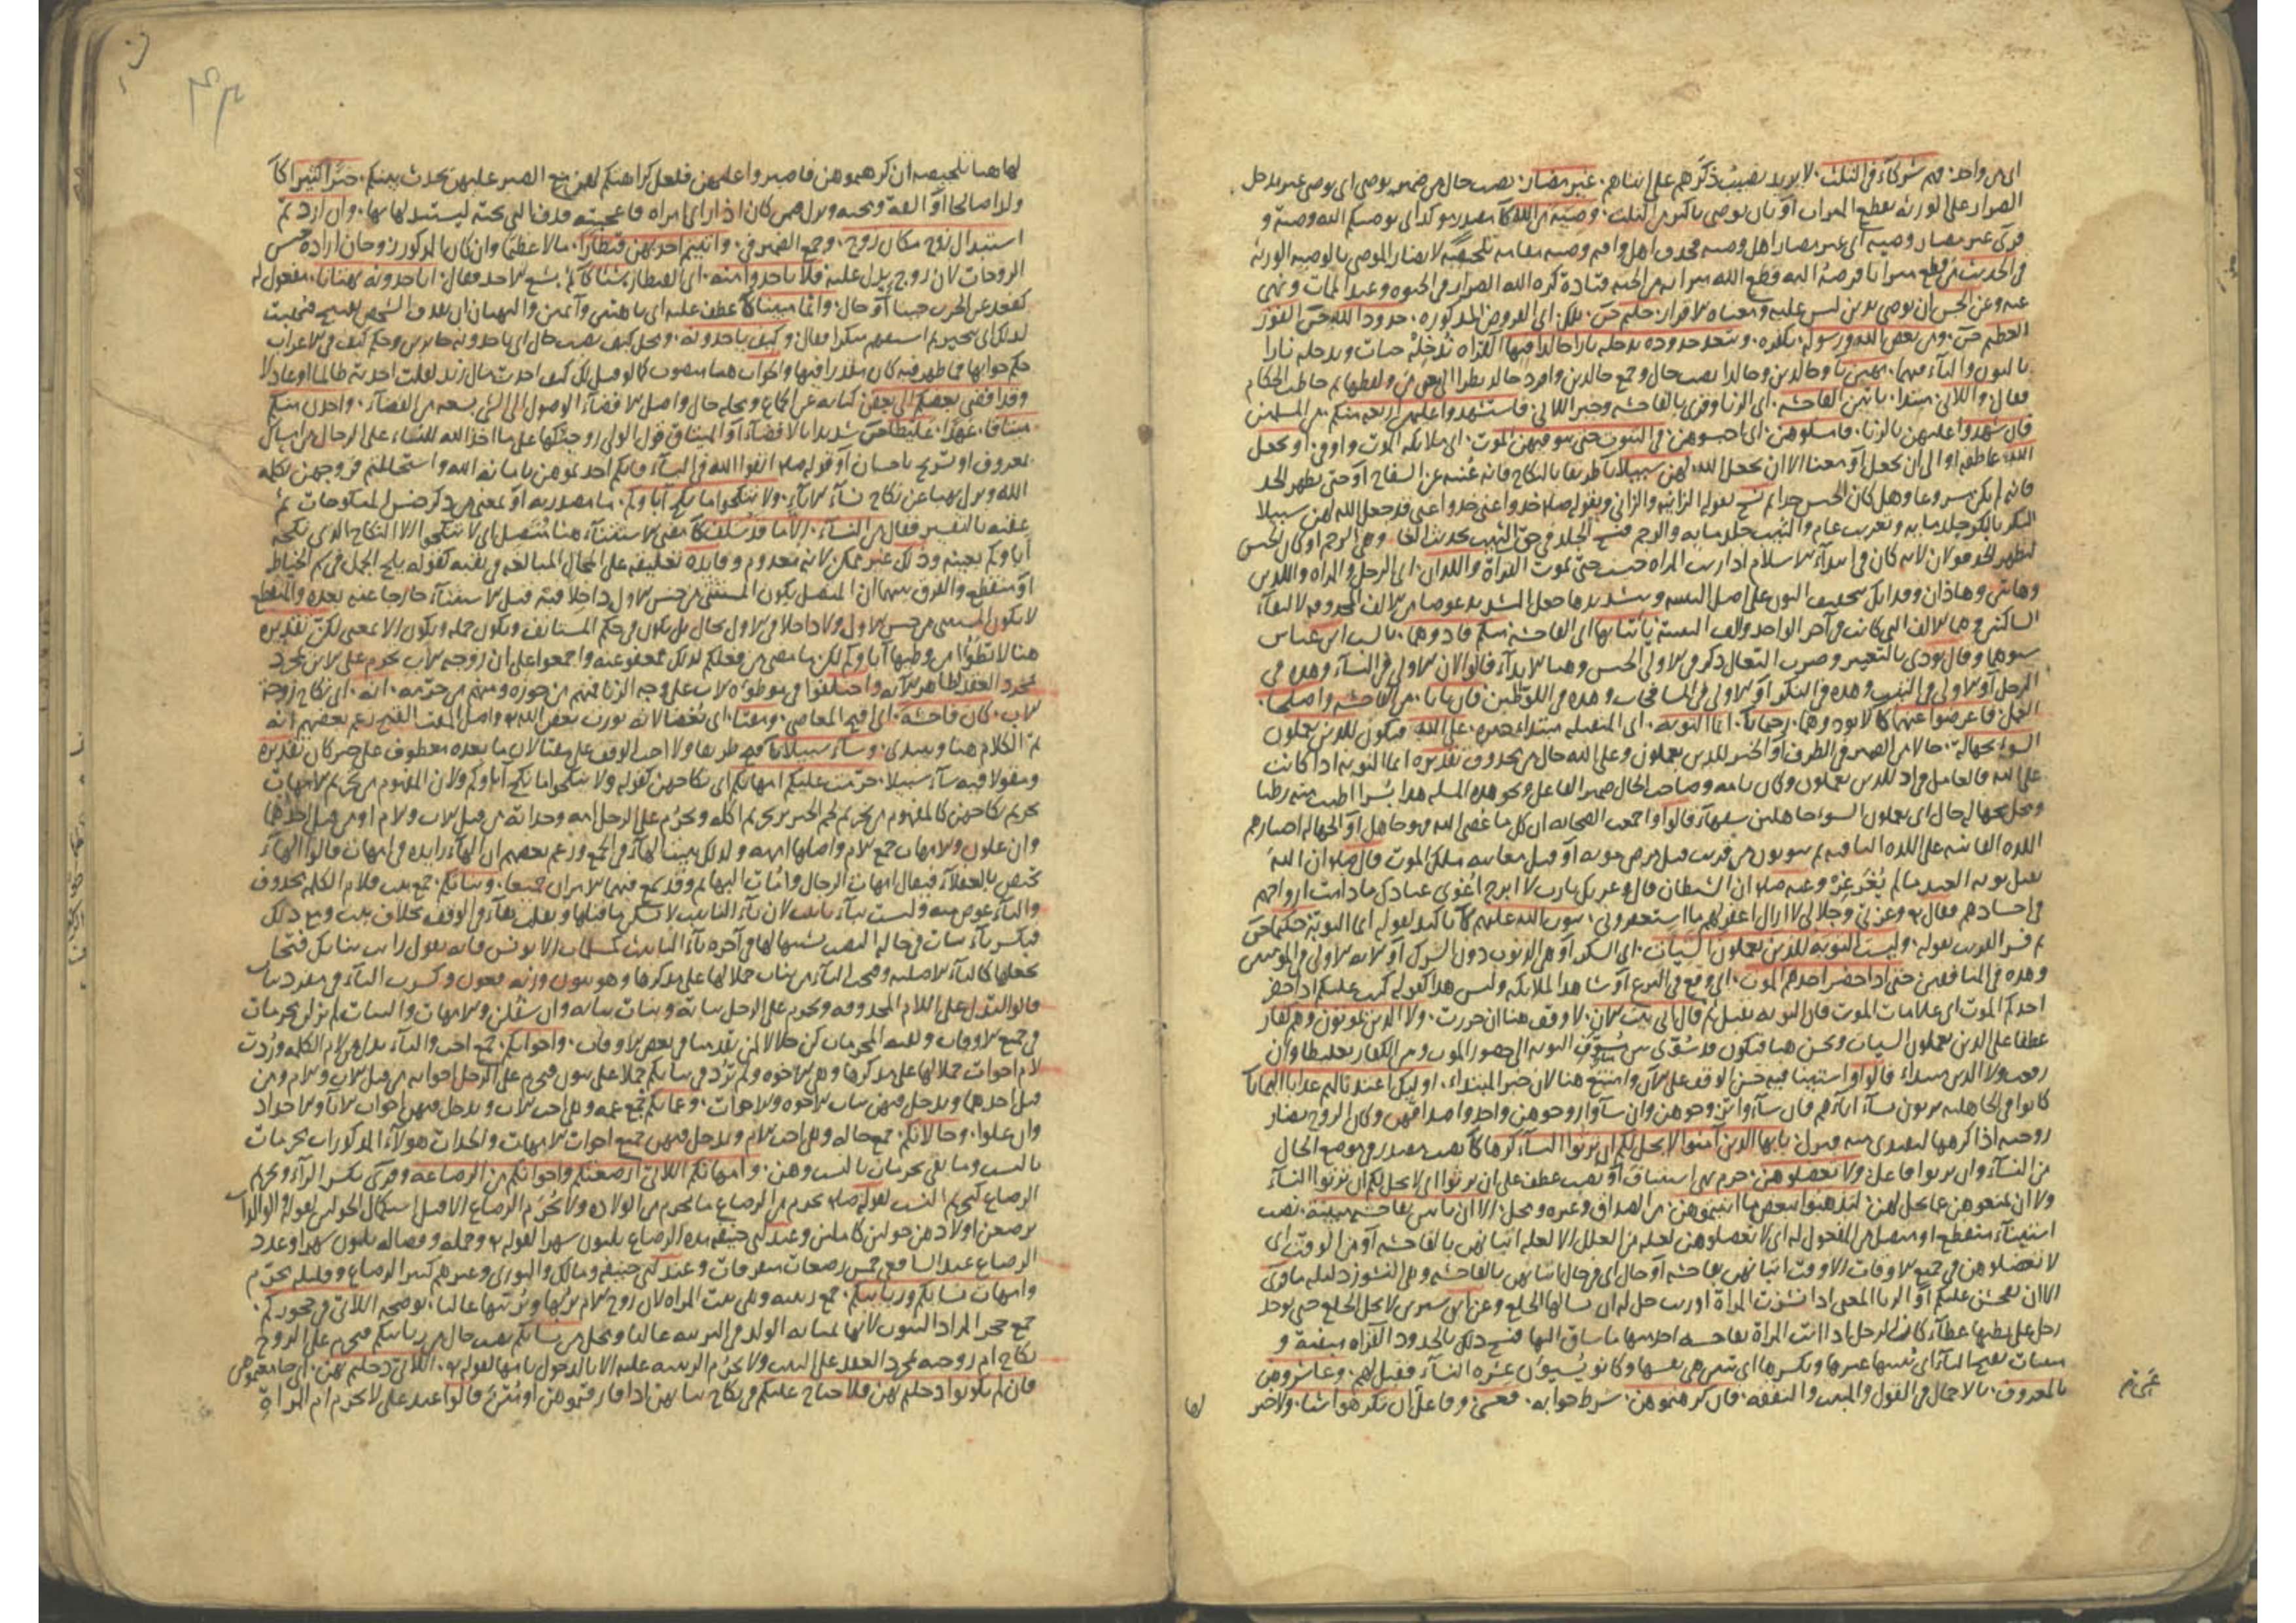 اى من واحد فهم شركاء فى الثلث لا يريد نصيب ذكرهم على انثاهم غير مضار نصب حال من ضمير يوصى اى يوصى غير مدخل
الضرار على الورثة بقطع الميراث او بان يوصى باكثر من الثلث وصية من الله كا مصدر مؤكد اى يوصيكم الله وصية و
قرى غير مضار وصية اى غير مضار اهل وصية فحذف اهل واقيم وصية مقامه تلخيصه لا يضار الموصى بالوصية الورثة
فى الحديث من قطع ميراثا فرضه الله قطع الله ميراثه من الجنة قتادة كره الله الضرار فى الحيوة وعند الممات ونهى
عنه وعن الحسن ان يوصى بدين ليس عليه ومعناه الاقرار حليم حسن تلك اى الفروض المذكورة حدود الله حسن الفوز
العظيم حسن ومن يعص الله ورسوله بكفره ويتعد حدوده يدخله نارا خالدا فيها القراة ندخله جنات وندخله نارا
بالنون والياء فيهما مهين تا وخالدين وخالدا نصب حال وجمع خالدين وافرد خالد نظرا الى معنى من ولفظها ثم خاطب الحكام
فقال واللاتى مبتدا ياتين الفاحشة اى الزنا وقرى بالفاحشة وخبر اللاتى فاستشهدوا عليهن اربعة منكم من المسلمين
فان شهدوا عليهن بالزنا فامسكوهن اى احبسوهن فى البيوت حتى يتوفيهن الموت اى ملائكة الموت واو فى او يجعل
الله عاطفة او الى ان يجعل او معنا الا ان يجعل الله لهن سبيلا كا طريقا بالنكاح فانه غنية عن السفاح او حتى يظهر الحد
فانه لم يكن مشروعا وهل كان الحبس حدا ثم نسخ بقوله الزانية والزانى وبقوله صلعم خذوا عنى خذوا عنى قد جعل الله لهن سبيلا
البكر بالبكر جلد مائة وتغريب عام والثيب جلد مائة والرجم فنسخ الجلد فى حق الثيب بحديث الغا وهى الرجم او كان الحبس
ليظهر الحد قولان لانه كان فى ابتداء الاسلام اذا زنت المراة حبست حتى تموت القراة واللذان اى الرجل والمراة واللذين
وهاتين وهاذان وفذانك بتخفيف النون على اصل التثنية وبتشديدها جعل التشديد عوضا من الالف المحذوفة لالتقاء
الساكنين وهما الالف التى كانت فى آخر الواحد والف التثنية ياتيانها اى الفاحشة منكم فاذوهما قالت ابن عباس
سبوهما وقال يؤذى بالتعيير وضرب النعال ذكر فى الاولى الحبس وهنا الايذاء قالوا لان الاولى فى النساء وهذه فى
الرجل او الاولى فى الثيب وهذه فى البكر او الاولى فى المسافحات وهذه فى اللواطين فان تابا من الفاحشة واصلحا
العمل فاعرضوا عنهما كا لا تؤذوهما رحيما كا انما التوبة اى المتقبلة مبتدا خبره على الله فيكون للذين يعملون
السوء بجهالة حالا من الضمير فى الظرف او الخبر للذين يعملون وعلى الله حال من محذوف تقديره انما التوبة اذا كانت
على الله فالعامل فى اذ للذين يعملون وكان تامة وصاحب الحال ضمير الفاعل ونحو هذه المسلة هذا بسرا اطيب منه رطبا
ومحل بجهالة حال اى يعملون السوء جاهلين سفهاء قالوا واجمعت الصحابة ان كل ما عصى الله به فهو جاهل او الجهالة اختيارهم
اللذة الفانية على اللذة الباقية ثم يتوبون من قريب قبل مرض موته او قبل معاينة ملك الموت قال صلعم ان الله
يقبل توبة العبد ما لم يغرغر وعنه صلعم ان الشيطان قال وعزتك يا رب لا ابرح اغوى عبادك ما دامت ارواحهم
فى اجسادهم فقال تع وعزتى وجلالى لا ازال اغفر لهم ما استغفرونى يتوب الله عليهم كا تاكيد لقوله انما التوبة حكيما حسن
ثم فسر القريب بقوله وليست التوبة للذين يعملون السيئات اى السكر او هى الذنوب دون الشرك او لانه الاولى فى المؤمنين
وهذه فى المنافقين حتى اذا حضر احدهم الموت اى وقع فى النزع او شاهد الملائكة وليس هذا كقوله كتب عليكم اذا حضر
احدكم الموت اى علامات الموت فان التوبة تقبل ثم قال انى تبت الان لا وقف هنا ان جررت ولا الذين يموتون وهم كفار
عطفا على الذين يعملون السيئات وتحسن هنا فيكون قد سوى بين مسوف التوبة الى حضور الموت ومن الكفار تغليظا وان
رفعت ولا الذين مبتداء قالوا او استينا فيه حسن الوقف على الان وامتنع هنا لان خبر المبتداء اولئك اعتدنا لهم عذابا اليما كا
كانوا فى الجاهلية يرثون نساء اباءهم فان شاءوا تزوجوهن وان شاءوا زوجوهن واخذوا صداقهن وكان الزوج يضار
زوجته اذا كرهها لتفتدى منه فنزل يا ايها الذين آمنوا لا يحل لكم ان ترثوا النساء كرها كا نصب مصدر فى موضع الحال
من النساء وان يرثوا فاعل ولا تعضلوهن جزم نهى استيناف او نصب عطف على ان يرثوا اى لا يحل لكم ان ترثوا النساء
ولا ان تمنعوهن عما يحل لهن لتذهبوا ببعض ما آتيتموهن من الصداق وغيره ومحل الا ان ياتين بفاحشة مبينة نصب
استثناء منقطع او متصل من المفعول له اى لا تعضلوهن لعلة من العلل الا لعلة اتيانهن بالفاحشة او من الوقت اى
لا تعضلوهن فى جميع الاوقات الا وقت اتيانهن بفاحشة او حال اى فى حال اتيانهن بالفاحشة وهى النشوز دليله ما قرى
الا ان يفحشن عليكم او الزنا المعنى اذا نشزت المراة او زنت حل له ان يسالها الخلع وعن ابن سيرين لا يحل الخلع حتى يوجد
رجل على بطنها عطاء كان الرجل اذا اتت المراة بفاحشة اخذ منها ما ساق اليها فنسخ ذلك بالحدود القراة مبينة و
مبينات بفتح الياء اى يبينها غيرها وبكسرها اى تبين هى نفسها وكانوا يسيؤن عشرة النساء فقيل لهم وعاشروهن
بالمعروف بالاجمال فى القول والمبيت والنفقة فان كرهتموهن شرط جوابه فعسى وفاعل ان تكرهوا شيئا ولا خبر
لها
لها هنا تلخيصه ان كرهتموهن فاصبروا عليهن فلعل كراهتكم لهن مع الصبر عليهن تحدث بينكم خيرا كثيرا كا
ولدا صالحا او الفة ومحبة ونزل فيمن كان اذا راى امراة فاعجبته قذف التى تحته ليستبدلها بها وان اردتم
استبدال زوج مكان زوج وجمع الضمير فى وآتيتم احديهن قنطارا مالا عظيما وان كان المذكور زوجان ارادة جنس
الزوجات لان زوج يدل عليه فلا تاخذوا منه اى القنطار شيئا كا ثم بشع الاخذ فقال اتاخذونه بهتانا مفعول له
كقعد عن الحرب جبنا او حال واثما مبينا كا عطف عليه اى باهتين وآثمين والبهتان ان يقذف الشخص بقبيح فيبهت
لذلك اى يتحير ثم استفهم منكرا فقال وكيف تاخذونه ومحل كيف نصب حال اى تاخذونه جائرين وحكم كيف فى الاعراب
حكم جوابها فما ظهر فيه كان مقدرا فيها والجواب هنا منصوب كما لو قيل لك كيف اخذت مال زيد لقلت اخذته ظالما او عادلا
وقد افضى بعضكم الى بعض كناية عن الجماع ومحله حال واصل الافضاء الوصول الى الشئ بسعة من الفضاء واخذن منكم
ميثاقا عهدا غليظا حسن شديدا بالافضاء او الميثاق قول الولى زوجتكها على ما اخذ الله للنساء على الرجال من امساك
بمعروف او تسريح باحسان او قوله صلعم اتقوا الله فى النساء فانكم اخذتموهن بامانة الله واستحللتم فروجهن بكلمة
الله ونزل نهيا عن نكاح نساء الآباء ولا تنكحوا ما نكح آباؤكم ما مصدرية او بمعنى من ذكر جنس المنكوحات ثم
عقبه بالتفسير فقال من النساء الا ما قد سلف كا مضى الاستثناء هنا متصل اى لا تنكحوا الا النكاح الذى نكحه
آباؤكم بعينه وذلك غير ممكن لانه معدوم وفايدة تعليقه على المحال المبالغة فى نفيه كقوله يلج الجمل فى سم الخياط
او منقطع والفرق بينهما ان المتصل يكون المستثنى من جنس الاول داخلا فيه قبل الاستثناء خارجا عنه بعده والمنقطع
لا يكون المستثنى من جنس الاول ولا داخلا فى الاول بحال بل يكون فى حكم المستانف ويكون جملة ويكون الا بمعنى لكن تقديره
هنا لا تطؤا من وطيها آباؤكم لكن ما مضى من فعلكم لذلك فمعفو عنه واجمعوا على ان زوجة الاب تحرم على الابن بمجرد
مجرد العقد لظاهر الآية واختلفوا فى موطوءة الاب على وجه الزنا فمنهم من جوزه ومنهم من حرمه انه اى نكاح زوجة
الاب كان فاحشة اى اقبح المعاصى ومقتا اى بغضا لانه يورث بغض الله تع واصل المقت القبح زعم بعضهم انه
تم الكلام هنا ويبتدى وساء سبيلا تا قبح طريقا ولا احب الوقف على مقتا لان ما بعده معطوف على خبر كان تقديره
ومقولا فيه ساء سبيلا حرمت عليكم امهاتكم اى نكاحهن كقوله ولا تنكحوا ما نكح آباؤكم ولان المفهوم من تحريم الامهات
تحريم نكاحهن كالمفهوم من تحريم لحم الخنزير تحريم اكله وتحرم على الرجل امه وجداته من قبل الاب والام او من قبل احدهما
وان علون والامهات جمع الام واصلها امهة ولذلك يبينا الهاء فى الجمع وزعم بعضهم ان الهاء زايدة فى امهات قالوا الهاء
تختص بالعقلاء فيقال امهات الرجال وامات البهائم وقد يجمع فيهما الامران جميعا وبناتكم جمع بنت فلام الكلمة محذوف
والتاء عوض منه وليست بتاء تانيث لان تاء التانيث لا تسكن ما قبلها وتقلب هاء فى الوقف بخلاف بنت ومع ذلك
فتكسر تاء بنات فى حالة النصب تشبيها لها فى آخره تاء التانيث كمسلمات الا يونس فانه يقول رايت بناتك فتحا
بجعلها كالتاء الاصلية وفتحت الباء من بنات حملا لها على مذكرها وهو بنون وزنه فعون وكسرت الباء فى مفرد بنات
قالوا لتدل على اللام المحذوفة وتحرم على الرجل بناته وبنات بناته وان سفلن والامهات والبنات لم تزلن محرمات
فى جميع الاوقات وبقية المحرمات كن حلالا لمن تقدمنا فى بعض الاوقات واخواتكم جمع اخت والتاء بدل من لام الكلمة وردت
لام اخوات حملا لها على مذكرها وهى الاخوة ولم ترد فى بناتكم حملا على بنون فيحرم على الرجل اخواته من قبل الاب والام ومن
قبل احدهما ويدخل فيهن بنات الاخوة والاخوات وعماتكم جمع عمة وهى اخت الاب ويدخل فيهن اخوات الآباء والاجداد
وان علوا وخالاتكم جمع خالة وهى اخت الام ويدخل فيهن جميع اخوات الامهات والجدات هؤلاء المذكورات محرمات
بالنسب وما بقى محرمات بالسبب وهن وامهاتكم اللاتى ارضعنكم واخواتكم من الرضاعة وقرى بكسر الراء وتحرم
الرضاع كتحريم النسب لقوله صلعم يحرم من الرضاع ما يحرم من الولادة ولا يحرم الرضاع الا قبل استكمال الحولين لقوله والوالدات
يرضعن اولادهن حولين كاملين وعند ابى حنيفة مدة الرضاع ثلثون شهرا لقوله تع وحمله وفصاله ثلثون شهرا وعدد
الرضاع عند الشافعى خمس رضعات متفرقات وعند ابى حنيفة ومالك والثورى وغيرهم كثير الرضاع وقليله يحرم
وامهات نسائكم وربائبكم جمع ربيبة وهى بنت المراة لان زوج الام يربيها وتربيتها غالبا يوضحه اللاتى فى حجوركم
جمع حجر المراد البيوت لانها بمثابة الولد فى التربية غالبا ومحل من نسائكم نصب حال من ربائبكم فيحرم على الزوج
نكاح ام زوجته بمجرد العقد على البنت ولا تحرم الربيبة عليه الا بالدخول بامها لقوله تع اللاتى دخلتم بهن اى جامعتموهن
فان لم تكونوا دخلتم بهن فلا جناح عليكم فى نكاح بناتهن اذا فارقتموهن او متن قالوا عند على لا تحرم ام المراة